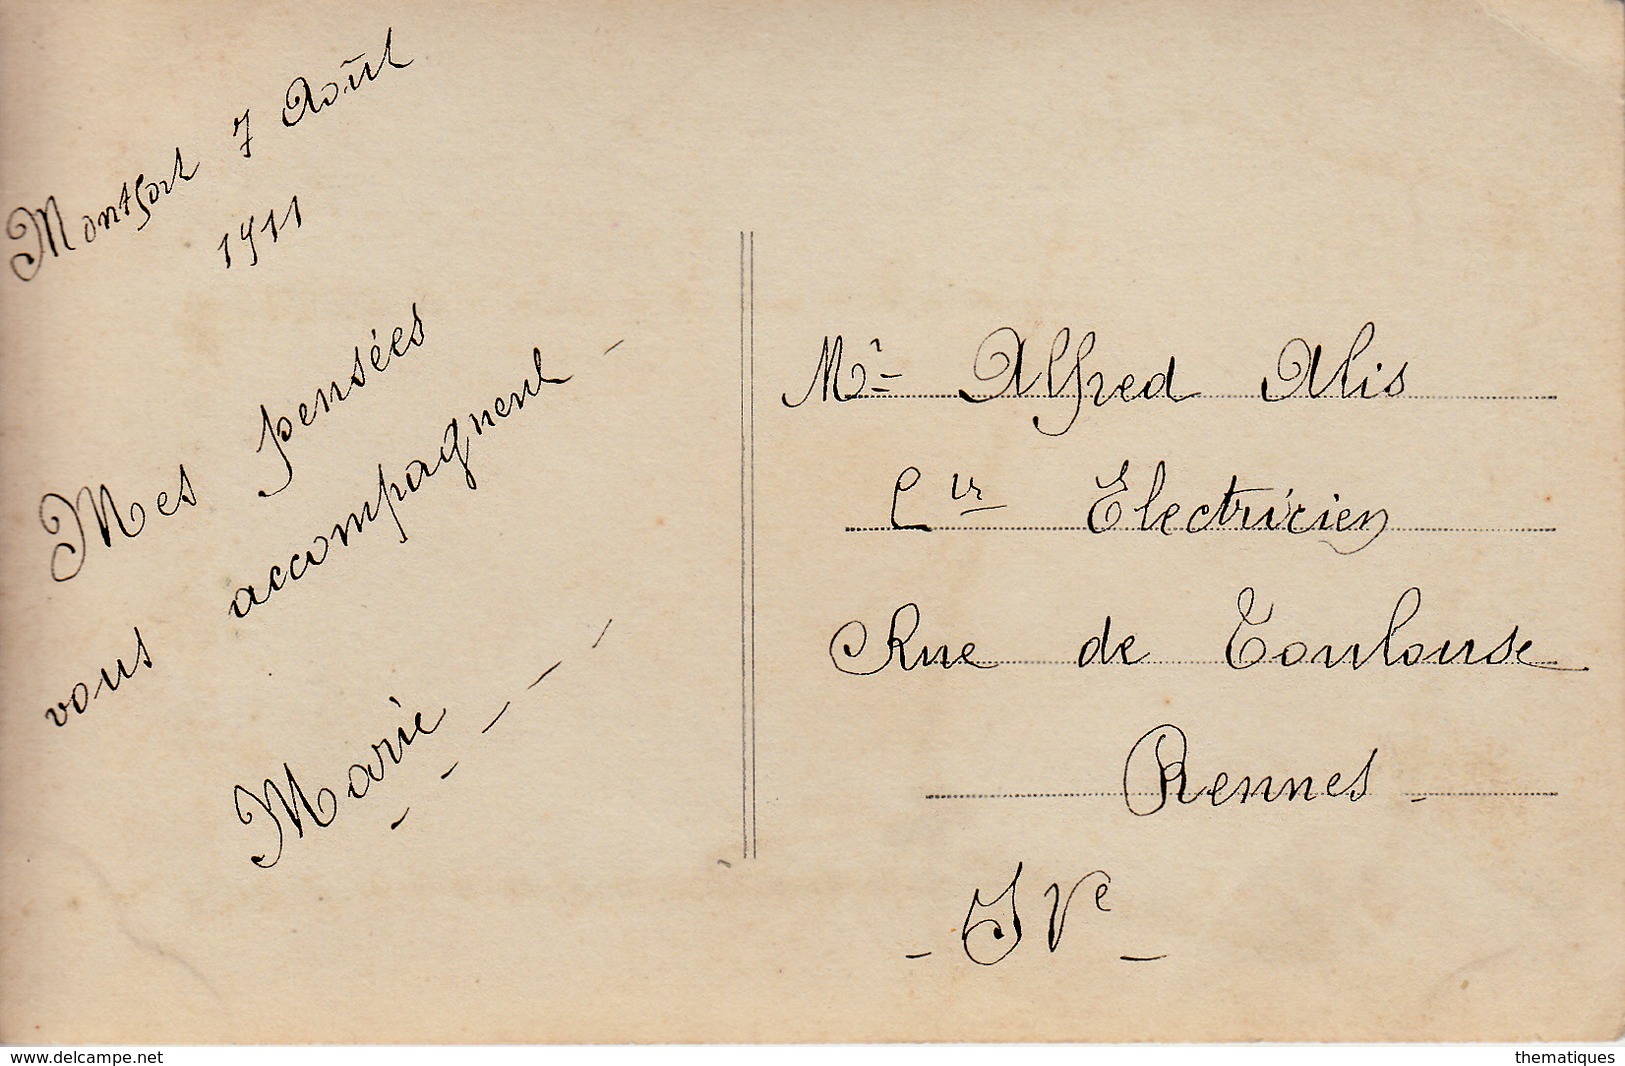 Montfort 7 Août
1911
Mes pensées
vous accompagnent -
Marie
Mr Alfred Alis
Electricien
Rue de Toulouse
Rennes -
- I Ve -
www.delcampe.net
thematiques